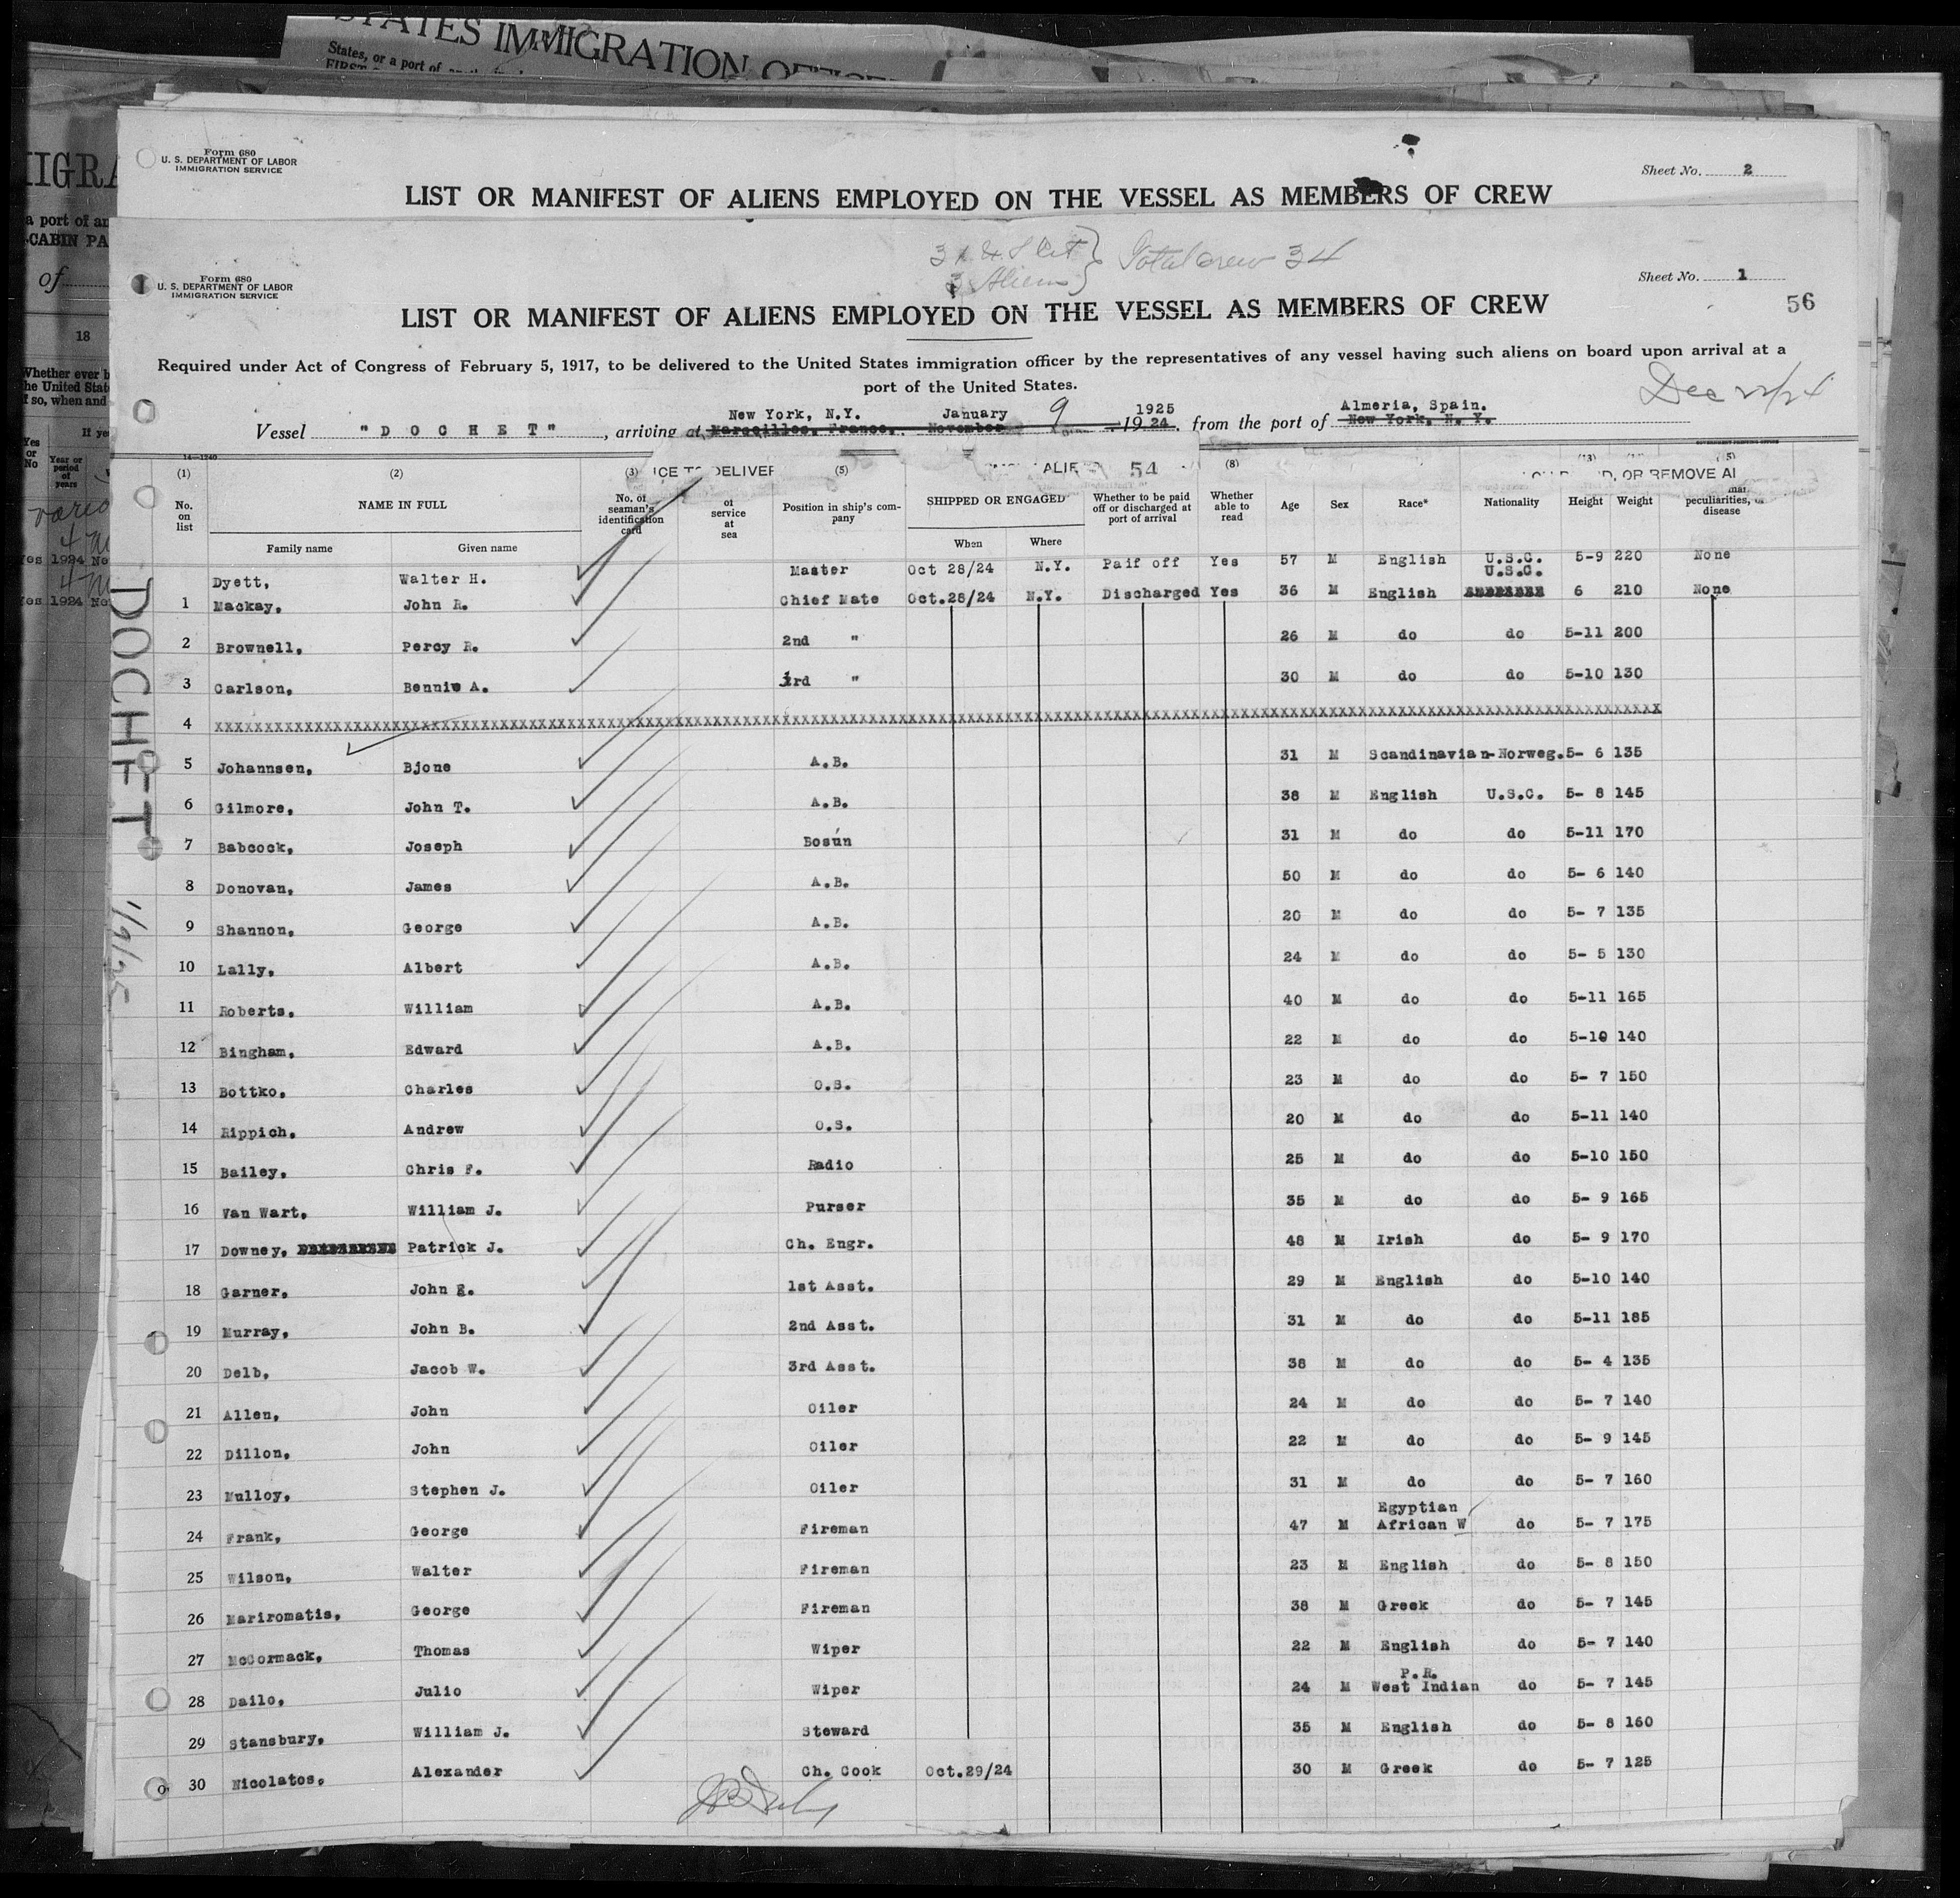 STATES IMMIGRATION
States, or a port of
Form 680
U. S. DEPARTMENT OF LABOR
IMMIGRATION SERVICE
Sheet No. 2
LIST OR MANIFEST OF ALIENS EMPLOYED ON THE VESSEL AS MEMBERS OF CREW
3 Aliens } Total crew 34
Form 680
U. S. DEPARTMENT OF LABOR
IMMIGRATION SERVICE
Sheet No. 1
56
LIST OR MANIFEST OF ALIENS EMPLOYED ON THE VESSEL AS MEMBERS OF CREW
Required under Act of Congress of February 5, 1917, to be delivered to the United States immigration officer by the representatives of any vessel having such aliens on board upon arrival at a
port of the United States.
Dec 22/24
New York, N.Y. January 9 1925 Almeria, Spain.
Vessel "D O C H E T", arriving at Marseilles, France, November 1924, from the port of New York, N. Y.
(1) (2) (3) ICE TO DELIVER (5) ALIE 54 (8) , OR REMOVE AL
No. on list NAME IN FULL No. of seaman's identification card of service at sea Position in ship's company SHIPPED OR ENGAGED Whether to be paid off or discharged at port of arrival Whether able to read Age Sex Race* Nationality Height Weight peculiarities, disease
Family name Given name When Where
Dyett, Walter H. Master Oct 28/24 N.Y. Paif off Yes 57 M English U.S.C. 5-9 220 None
U.S.C.
1 Mackay, John R. Chief Mate Oct.28/24 N.Y. Discharged Yes 36 M English 6 210 None
2 Brownell, Percy R. 2nd " 26 M do do 5-11 200
3 Carlson, Bennie A. 3rd " 30 M do do 5-10 130
4 xxxxxxxxxxxxxxxxxxxxxxxxxxxxxxxxxxxxxxxxxxxxxxxxxxxxxxxxxxxxxxxxxxxxxxxxxxxxxxxxxxxxxxxxxxxxxxxxxxxxxxxxxxxxxxxxxxxx
5 Johannsen, Bjone A.B. 31 M Scandinavian-Norweg. 5- 6 135
6 Gilmore, John T. A.B. 38 M English U.S.C. 5- 8 145
7 Babcock, Joseph Bosun 31 M do do 5-11 170
8 Donovan, James A.B. 50 M do do 5- 6 140
9 Shannon, George A.B. 20 M do do 5- 7 135
10 Lally, Albert A.B. 24 M do do 5- 5 130
11 Roberts, William A.B. 40 M do do 5-11 165
12 Bingham, Edward A.B. 22 M do do 5-10 140
13 Bottko, Charles O.S. 23 M do do 5- 7 150
14 Rippich, Andrew O.S. 20 M do do 5-11 140
15 Bailey, Chris F. Radio 25 M do do 5-10 150
16 Van Wart, William J. Purser 35 M do do 5- 9 165
17 Downey, Patrick J. Ch. Engr. 48 M Irish do 5- 9 170
18 Garner, John E. 1st Asst. 29 M English do 5-10 140
19 Murray, John B. 2nd Asst. 31 M do do 5-11 185
20 Delb, Jacob W. 3rd Asst. 38 M do do 5- 4 135
21 Allen, John Oiler 24 M do do 5- 7 140
22 Dillon, John Oiler 22 M do do 5- 9 145
23 Mulloy, Stephen J. Oiler 31 M do do 5- 7 160
Egyptian
24 Frank, George Fireman 47 M African W do 5- 7 175
25 Wilson, Walter Fireman 23 M English do 5- 8 150
26 Mariromatis, George Fireman 38 M Greek do 5- 7 145
27 McCormack, Thomas Wiper 22 M English do 5- 7 140
P.R.
28 Dailo, Julio Wiper 24 M West Indian do 5- 7 145
29 Stansbury, William J. Steward 35 M English do 5- 8 160
30 Nicolatos, Alexander Ch. Cook Oct.29/24 30 M Greek do 5- 7 125
DOCHET 1/9/25